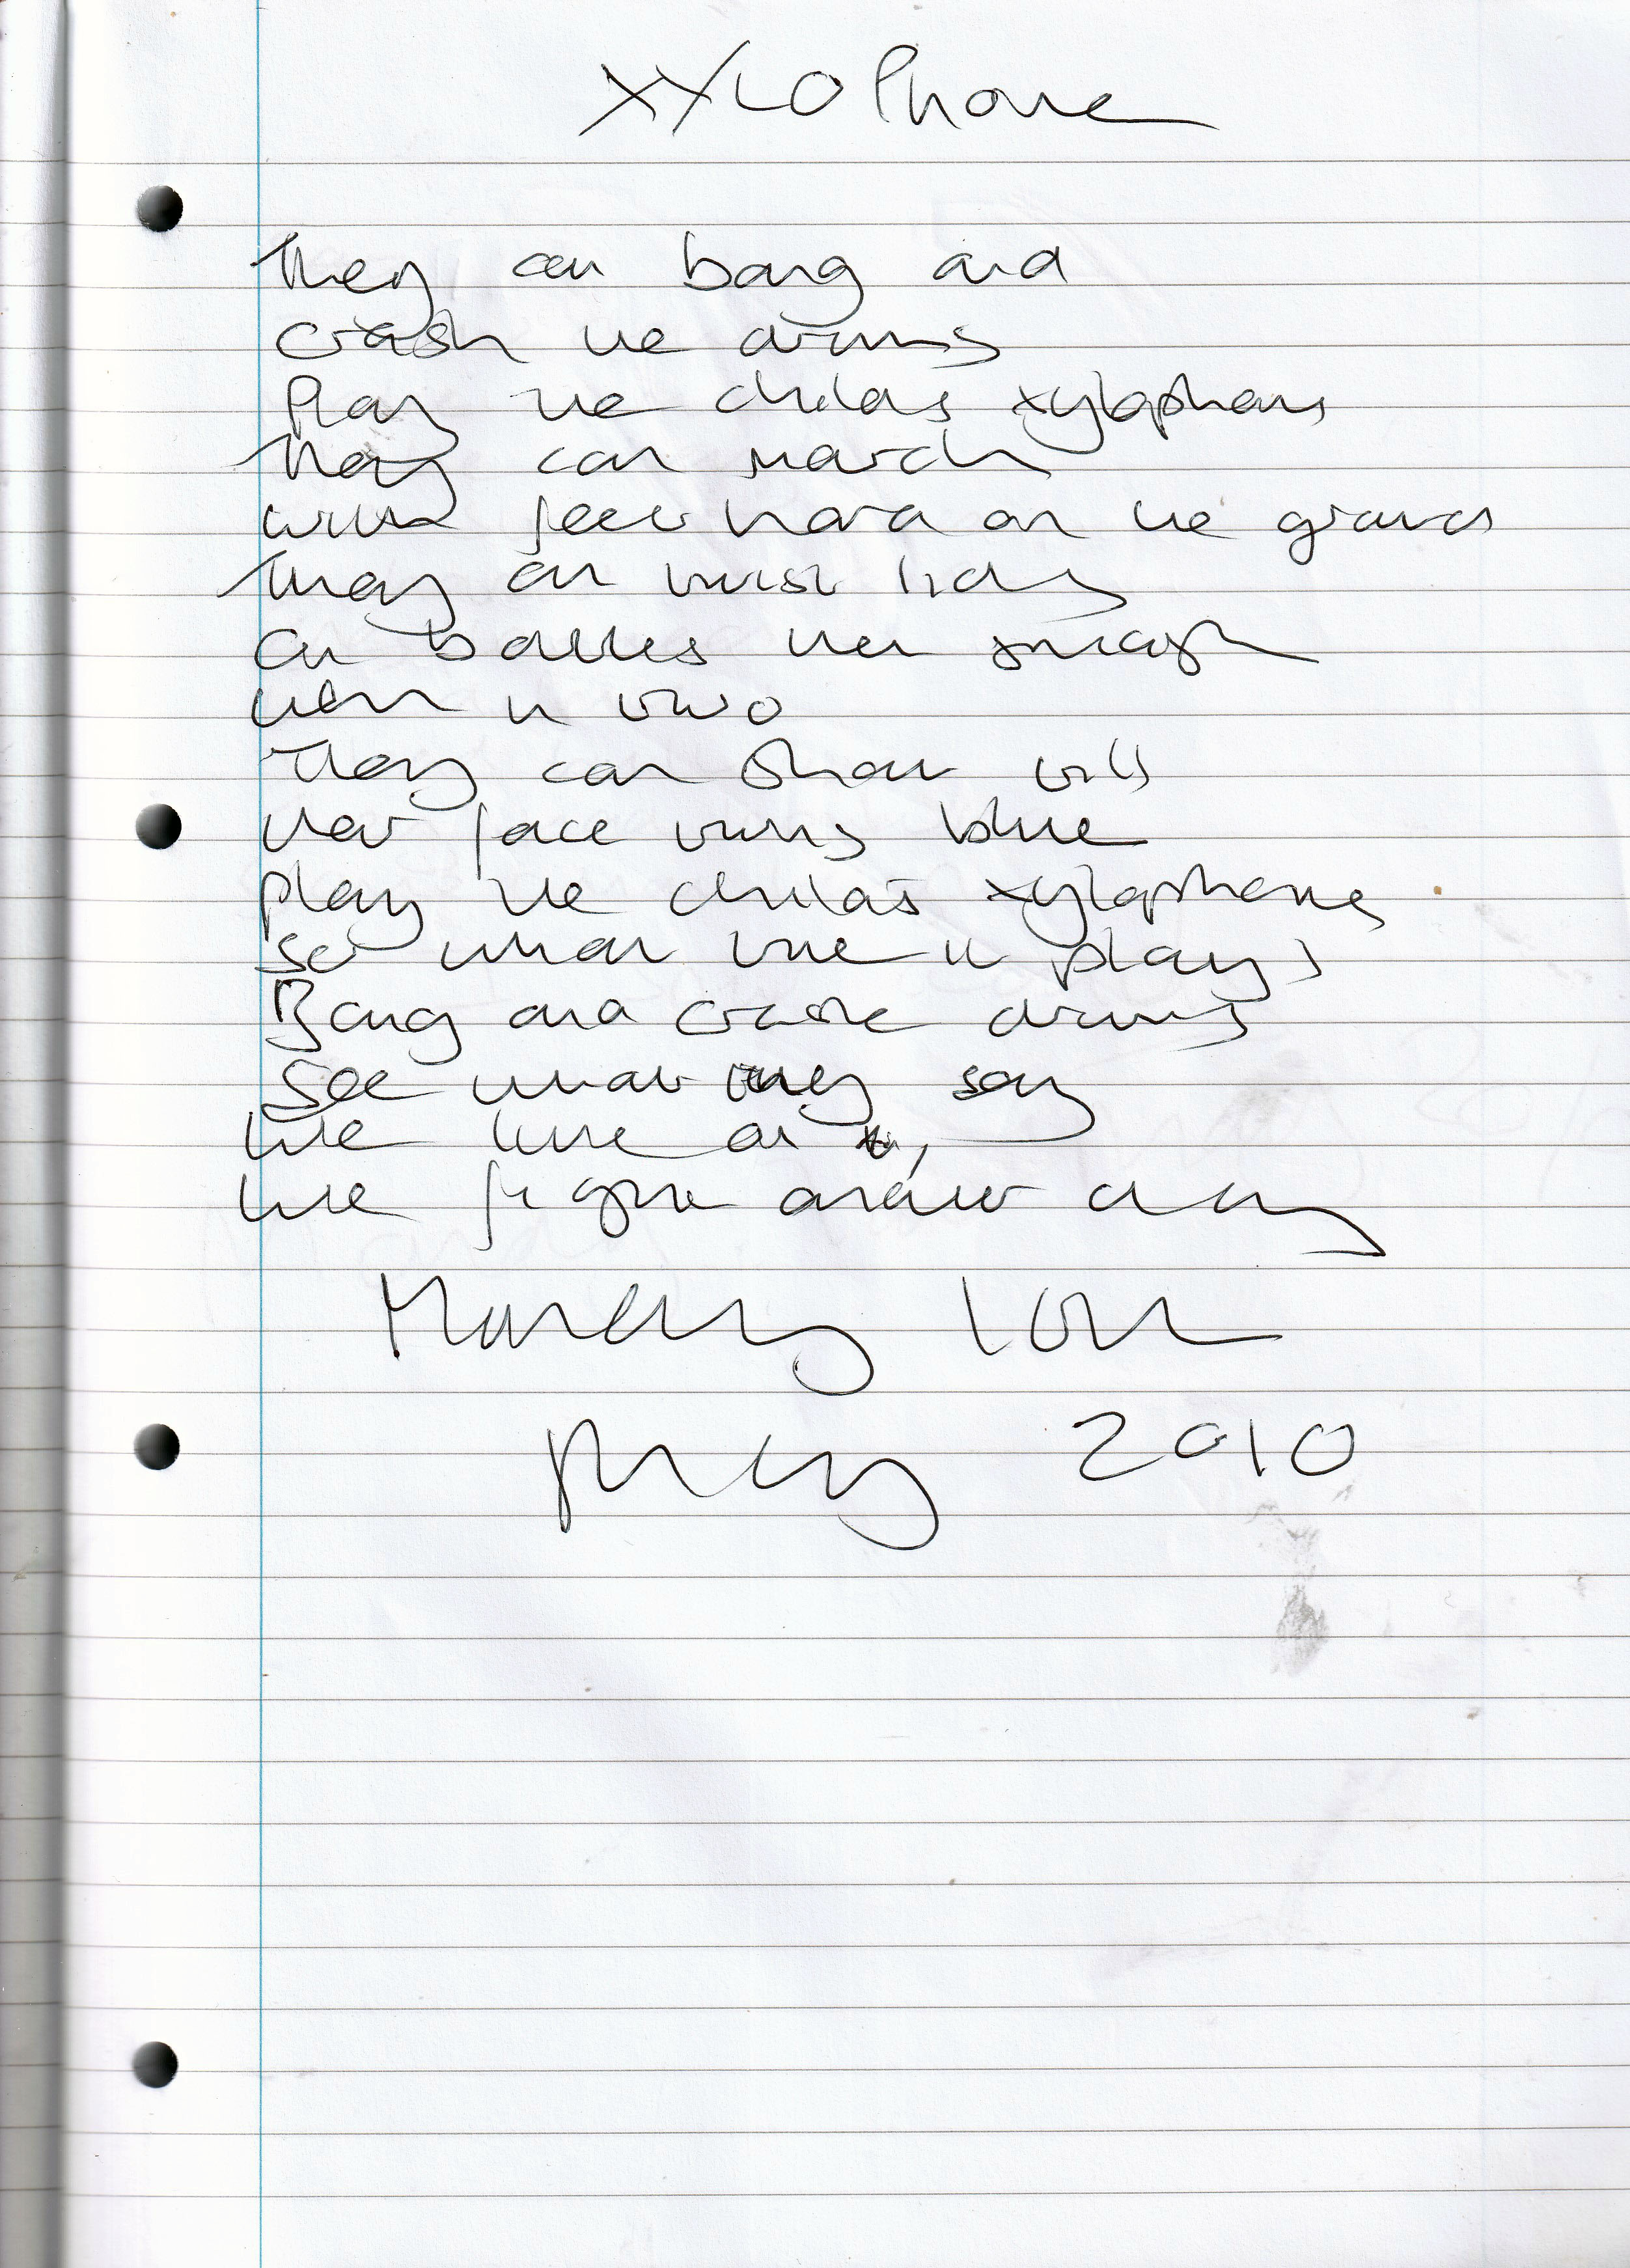 Xylophone
They can bang and
crash the drums
Play the childs xylophone
They can march
with feet hard on the ground
They can twist
or battles then smash
them in two
They can shout till
their face turns blue
play the child's xylophone
see what tune it plays
Bang and crash drums
See what they say
like fire and
May 2010